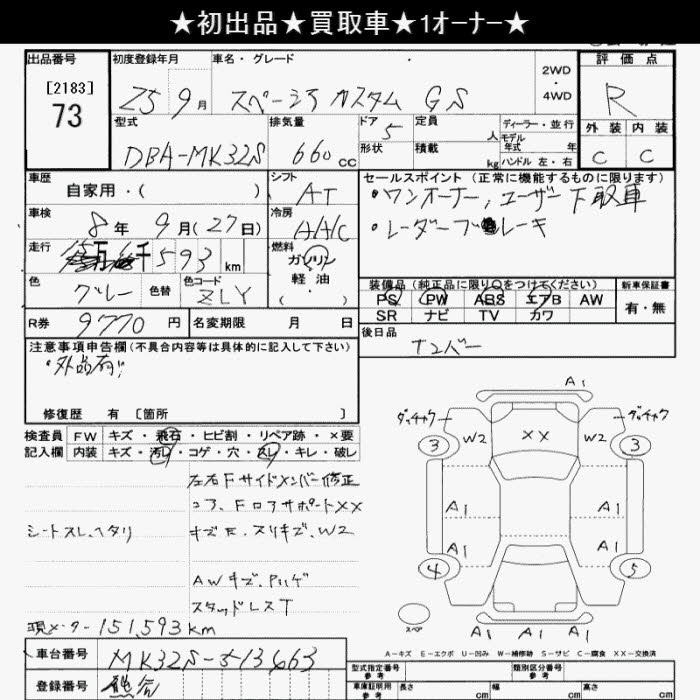 ★初出品★買取車★1オーナー★
出品番号
[2183]
73
初度登録年月
25 9月
車名・グレード
スペーシア カスタム GS
2WD
・
4WD
評価点
R
外装 内装
C C
型式
DBA-MK32S
排気量
660 cc
ドア
5
形状
定員
人
積載
kg
ディーラー・並行
モデル
年式 年
ハンドル 左・右
車歴
自家用・( )
シフト
AT
セールスポイント (正常に機能するものに限ります)
・ワンオーナー, ユーザー下取車
・レーダーブレーキ
車検
8年 9月(27日)
冷房
AAC
走行
万 千593 km
燃料
ガソリン
軽油
( )
色
グレー
色替
色コード
ZLY
装備品 (純正品に限り○をつけてください)
PS PW ABS エアB AW
SR ナビ TV カワ
新車保証書
有・無
R券 9770 円
名変期限 月 日
後日品
ナンバー
注意事項申告欄 (不具合内容等は具体的に記入して下さい)
・外品有
修復歴 有 〔箇所 〕
検査員
記入欄
FW キズ・飛石・ヒビ割・リペア跡・×要
内装 キズ・汚レ・コゲ・穴・スレ・キレ・破レ
左右Fサイドメンバー修正
コア、Fロアサポート××
シートスレ、ヘタリ
キズE、スリキズ、W2
AWキズ、ハゲ
スタッドレスT
現メーター 151,593 km
車台番号
MK32S-513663
登録番号
熊谷
A1
ダッチャク W2 ×× W2 ダッチャク
3 3
A1 A1
A1 A1
4 5
スペア
A1 A1 A1
A…キズ E…エクボ U…凹み W…補修跡 S…サビ C…腐食 XX…交換済
型式指定番号
参考
類別区分番号
参考
車庫証明用
参考
長さ cm
幅 cm
高さ cm